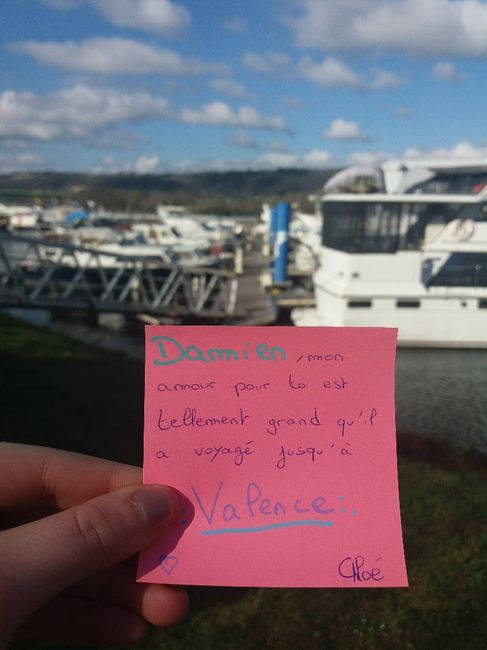 Damien, mon
amour pour to est
tellement grand qu'il
a voyagé jusqu'à
:Valence:.
♡ Chloé